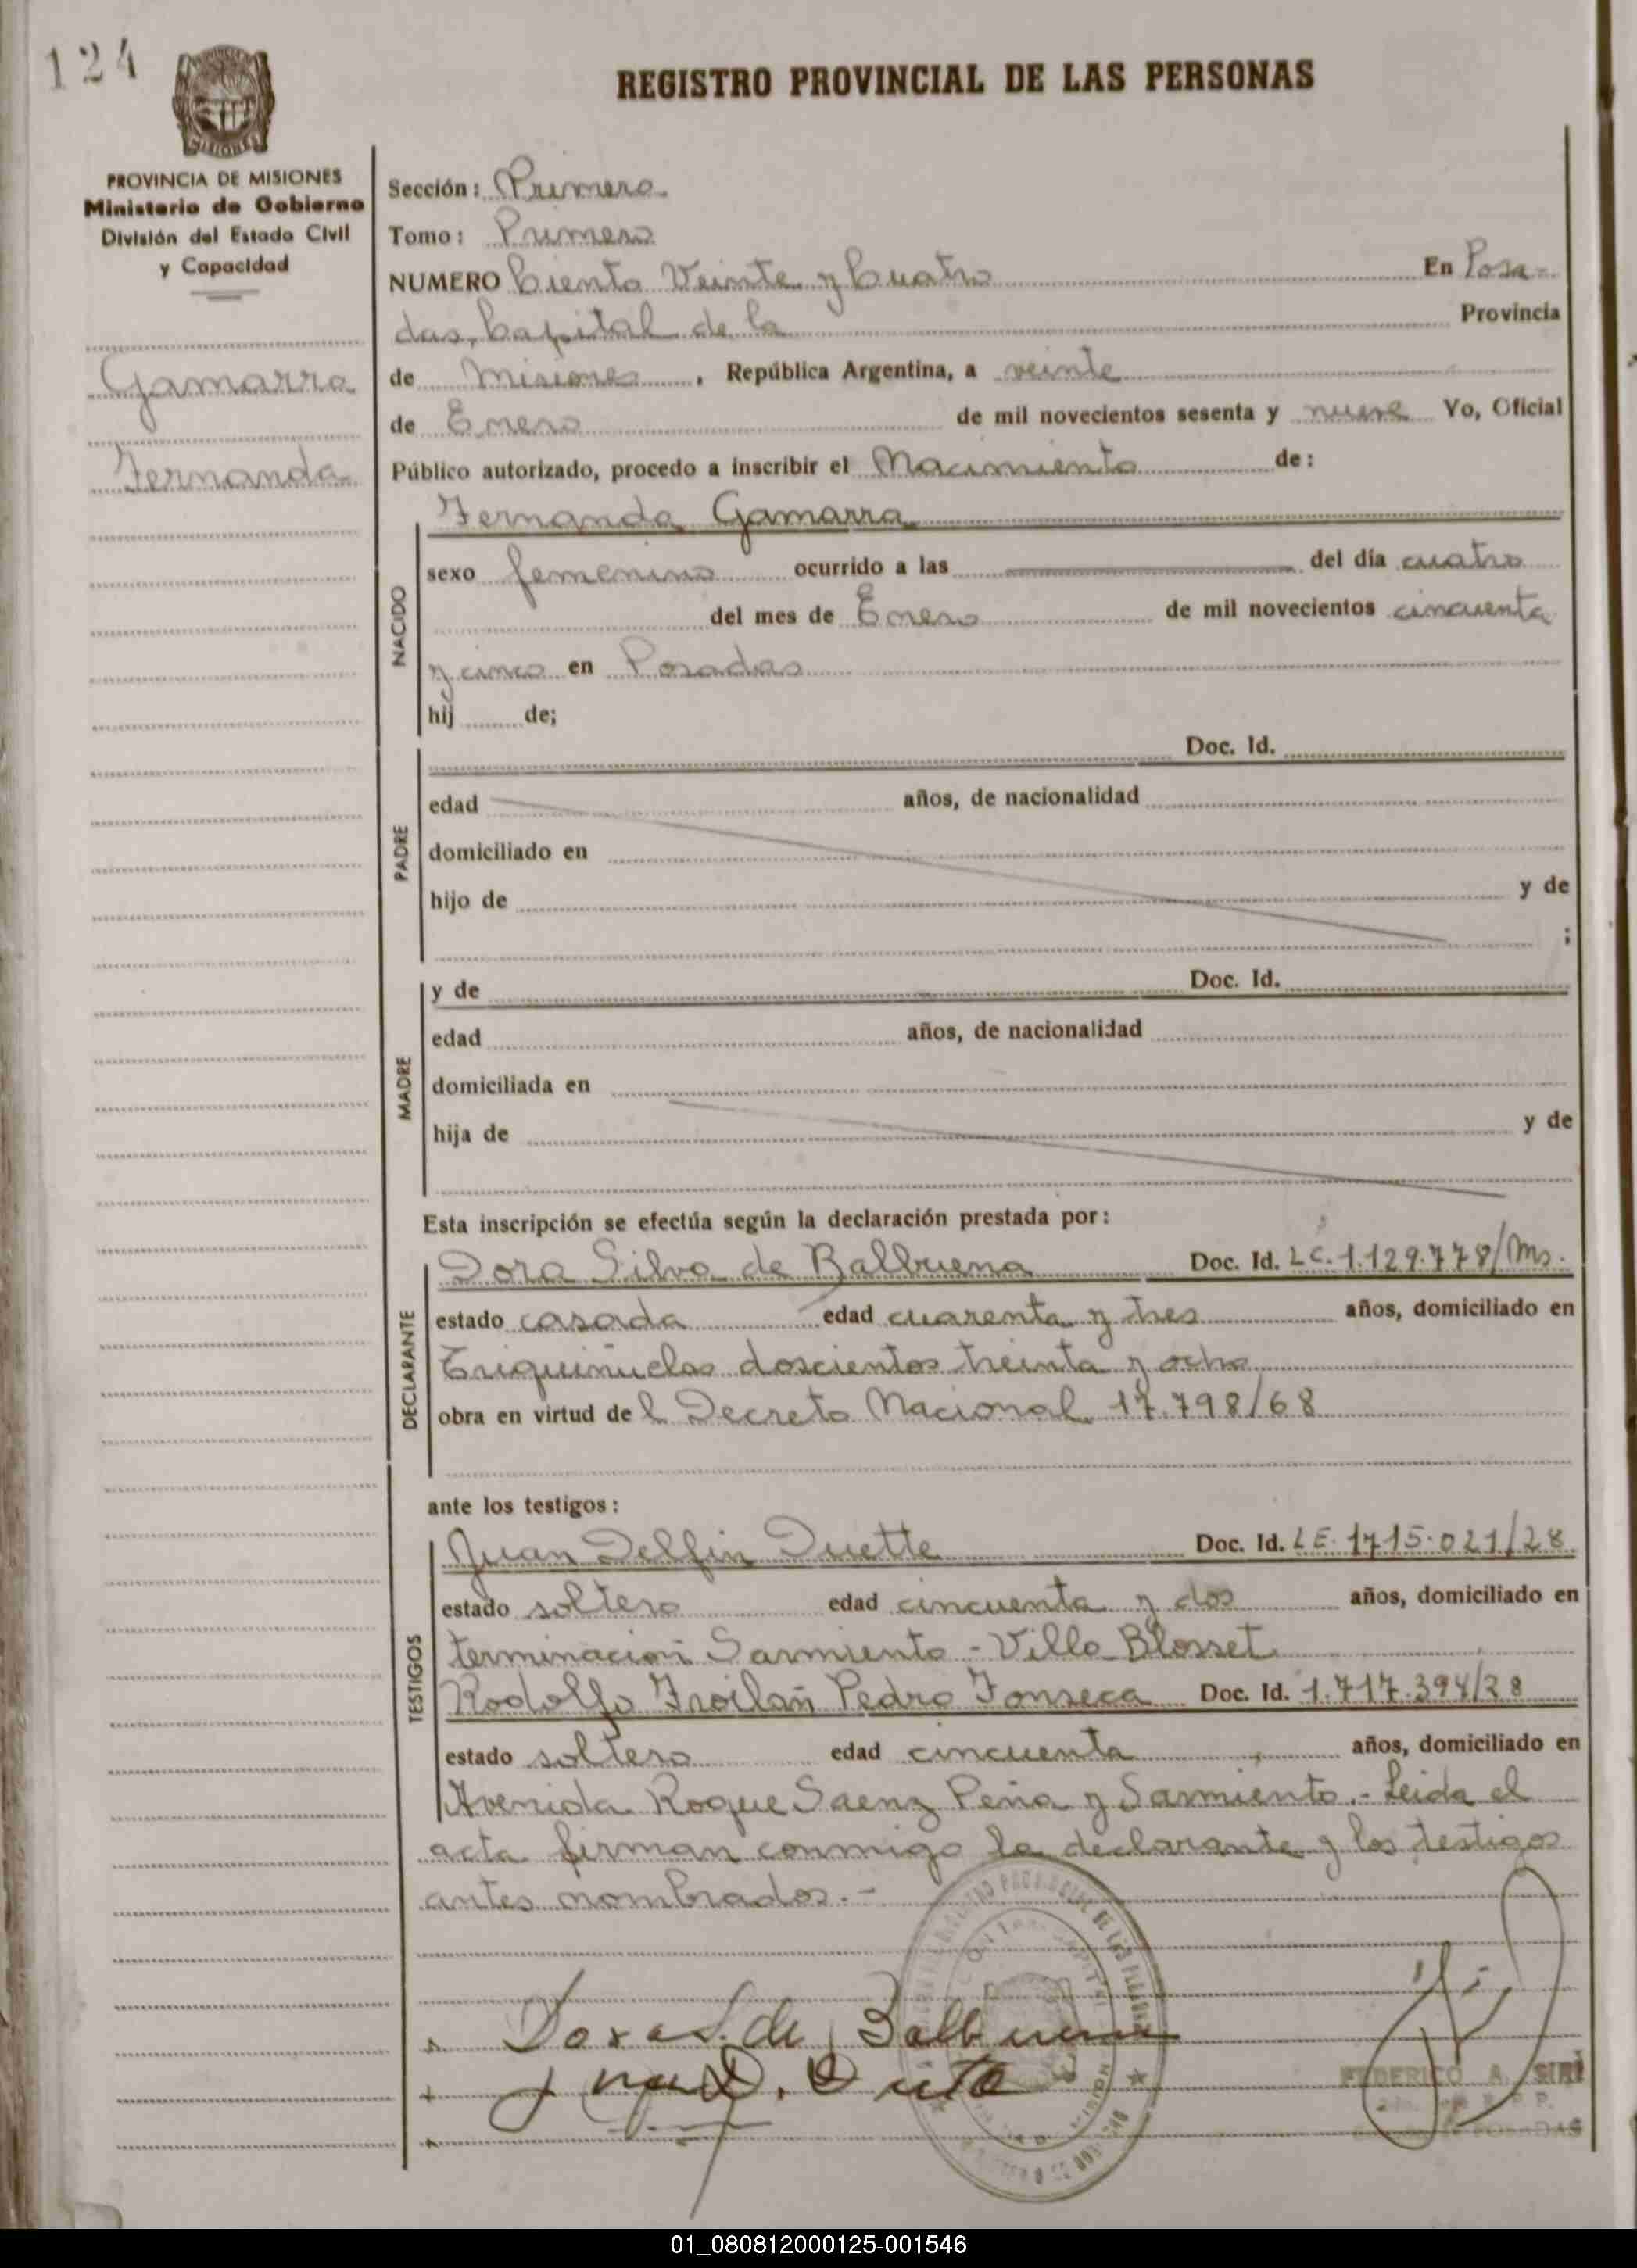 124
REGISTRO PROVINCIAL DE LAS PERSONAS
MISIONES
PROVINCIA DE MISIONES
Ministerio de Gobierno
División del Estado Civil
y Capacidad
Gamarra
Fernanda
Sección: Primera
Tomo: Primero
NUMERO Ciento Veinte y Cuatro En Posa-
das, Capital de la Provincia
de Misiones, República Argentina, a veinte
de Enero de mil novecientos sesenta y nueve Yo, Oficial
Público autorizado, procedo a inscribir el Nacimiento de:
Fernanda Gamarra
NACIDO
sexo femenino ocurrido a las del día cuatro
del mes de Enero de mil novecientos cincuenta
y cinco en Posadas
hij de;
PADRE
Doc. Id.
edad años, de nacionalidad
domiciliado en
hijo de y de
;
MADRE
y de Doc. Id.
edad años, de nacionalidad
domiciliada en
hija de y de
Esta inscripción se efectúa según la declaración prestada por:
DECLARANTE
Dora Silva de Balbuena Doc. Id. LC. 1.129.778/Ms.
estado casada edad cuarenta y tres años, domiciliado en
Triquiñuelas doscientos treinta y ocho
obra en virtud del Decreto Nacional 17.798/68
ante los testigos:
TESTIGOS
Juan Delfin Duette Doc. Id. LE. 1715.021/28
estado soltero edad cincuenta y dos años, domiciliado en
terminación Sarmiento - Villa Blosset
Rodolfo Froilañ Pedro Fonseca Doc. Id. 1.717.394/28
estado soltero edad cincuenta años, domiciliado en
Avenida Roque Saenz Peña y Sarmiento.- Leida el
acta firman conmigo la declarante y los testigos
antes nombrados.-
Dora S. de Balbuena
FEDERICO A. SIRI
POSADAS
01_080812000125-001546